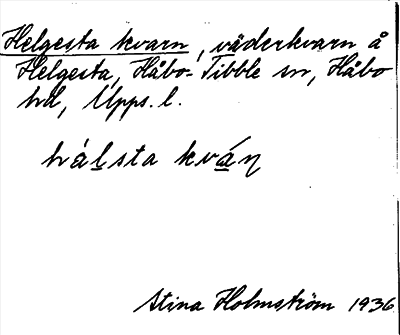 Helgesta kvarn, väderkvarn å
Helgesta, Håbo-Tibble sn, Håbo
hd, Upps. l.
hálsta kváṇ
Stina Holmström 1936